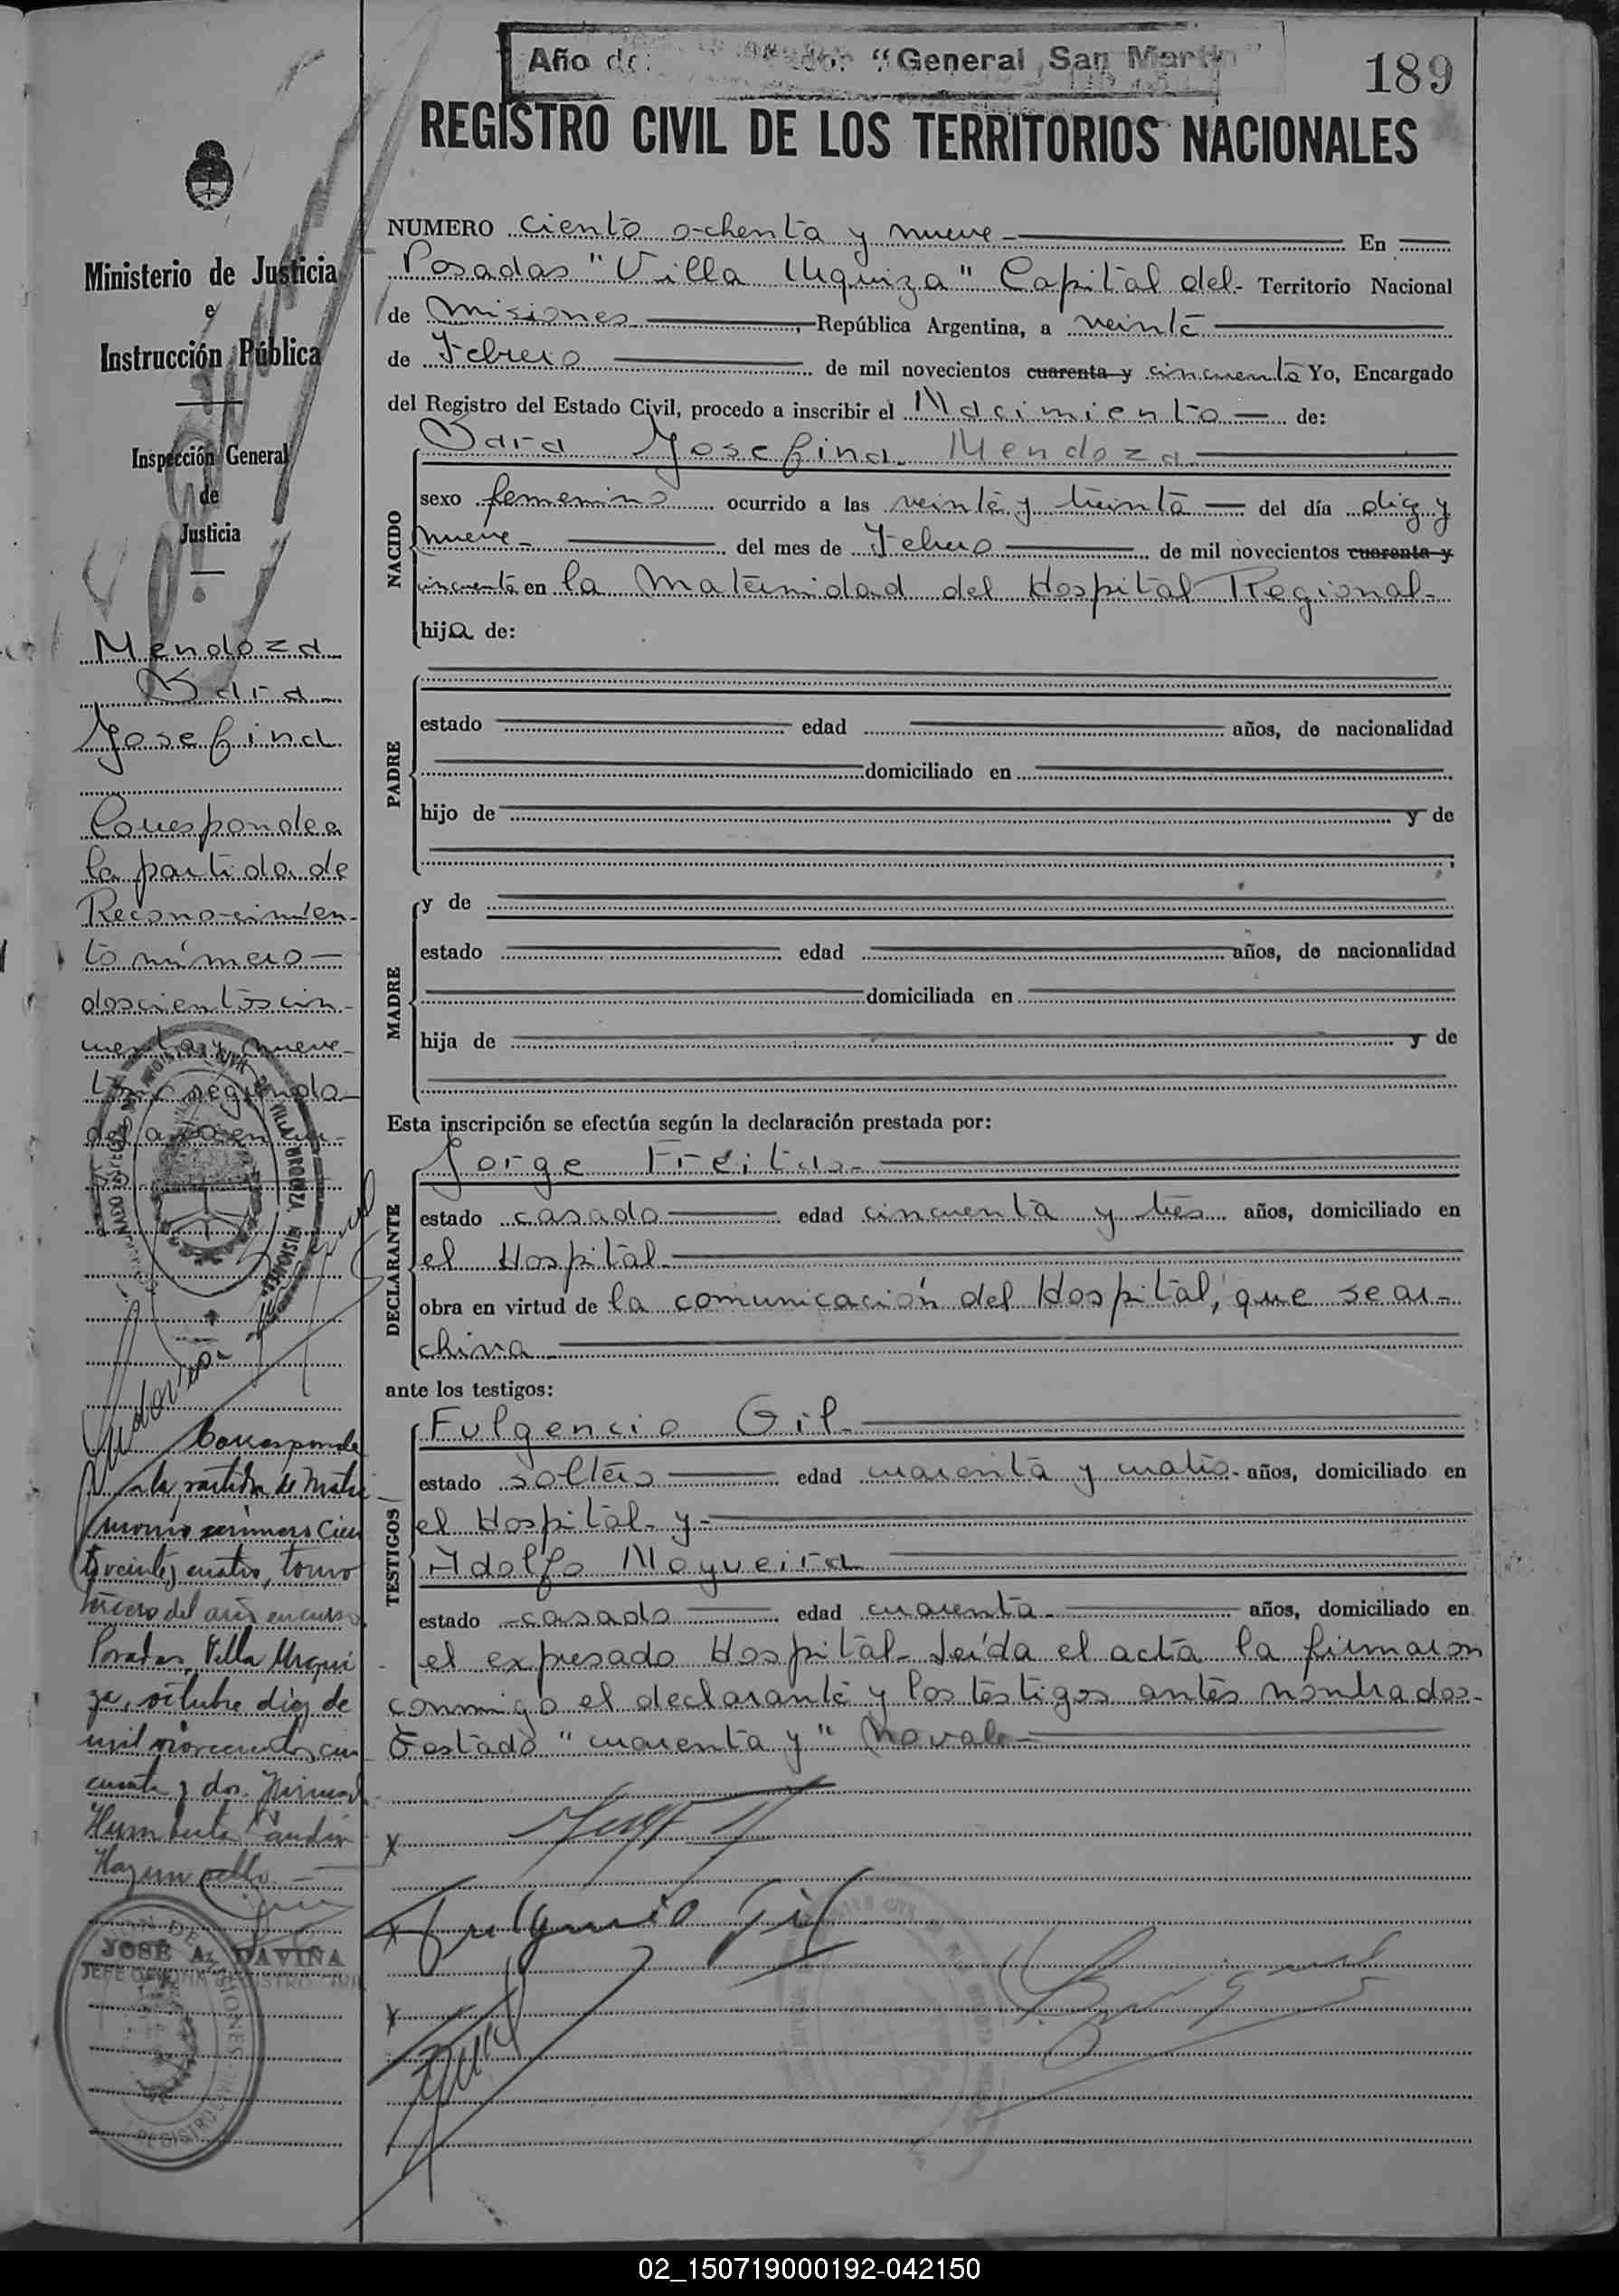 Año del Libertador "General San Martín"
189
REGISTRO CIVIL DE LOS TERRITORIOS NACIONALES
Ministerio de Justicia
e
Instrucción Pública
Inspección General
de
Justicia
Mendoza
Sara
Josefina
Corresponde a
la partida de
Reconocimien-
to número
doscientos cin-
cuenta y nueve
tomo segundo
del año en cur-
Corresponde
a la partida de Matri
monio número Cien
to veinte y cuatro, tomo
tercero del año en curso
Posadas, Villa Urqui
za, octubre diez de
mil novecientos cin
cuenta y dos.
Hay un sello.
JOSÉ A. DAVIÑA
JEFE OFICINA REGISTRO CIVIL
NUMERO ciento ochenta y nueve En
Posadas "Villa Urquiza" Capital del Territorio Nacional
de Misiones, República Argentina, a veinte
de Febrero de mil novecientos cuarenta y cincuenta Yo, Encargado
del Registro del Estado Civil, procedo a inscribir el Nacimiento de:
NACIDO
Sara Josefina Mendoza
sexo femenino ocurrido a las veinte y treinta del día diez y
nueve del mes de Febrero de mil novecientos cuarenta y
cincuenta en la Maternidad del Hospital Regional
hija de:
PADRE
estado edad años, de nacionalidad
domiciliado en
hijo de y de
MADRE
y de
estado edad años, de nacionalidad
domiciliada en
hija de y de
Esta inscripción se efectúa según la declaración prestada por:
DECLARANTE
Jorge Freitas
estado casado edad cincuenta y tres años, domiciliado en
el Hospital
obra en virtud de la comunicación del Hospital, que se ar-
chiva
ante los testigos:
TESTIGOS
Fulgencio Gil
estado soltero edad cuarenta y cuatro años, domiciliado en
el Hospital y
Adolfo Nogueira
estado casado edad cuarenta años, domiciliado en
el expresado Hospital. Leída el acta la firmaron
conmigo el declarante y los testigos antes nombrados.
Testado "cuarenta y" No vale
x
x Fulgencio Gil
x
02_150719000192-042150